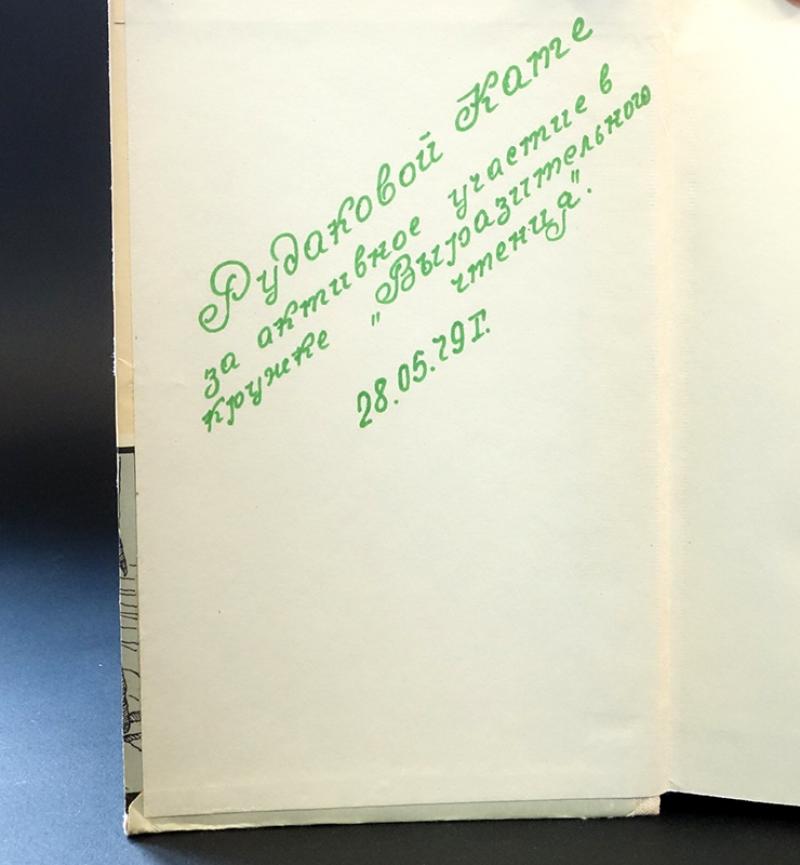 Рудаковой Кате
за активное участие в
кружке "Выразительного
чтения".
28.05.79г.